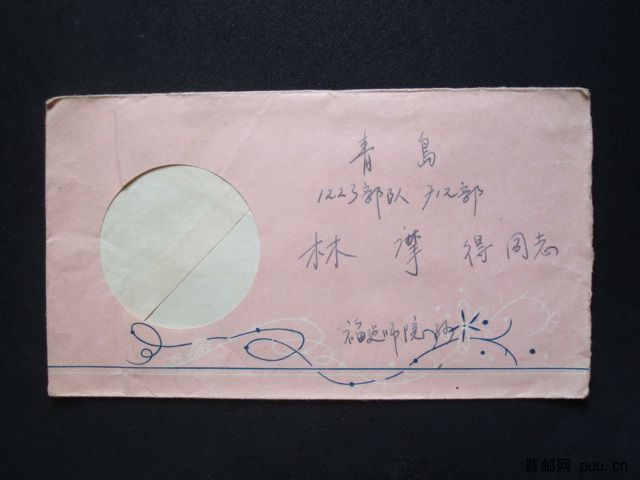 青島
1223部队 712部
林 肇 得 同志
福建师院
普邮网 puu.cn